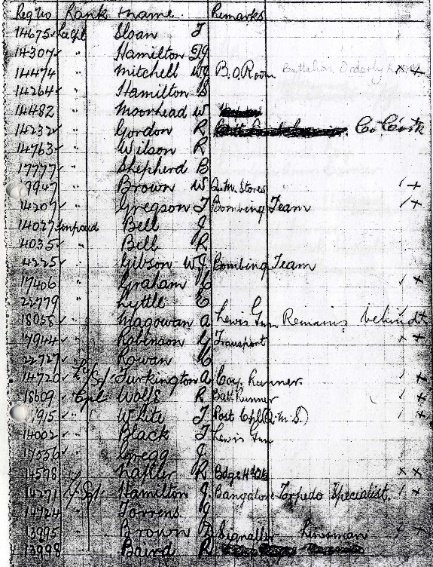 Reg No Rank & name. Remarks
14675 L/Cpl Sloan J
14307 " Hamilton
14474 " Mitchell B.O Room Battalion Orderly Room x x
14264 " Hamilton
14482 " Moorhead W
14232 " Gordon R Co Cook
14763 " Wilson R
17777 " Shepherd B
" Brown W Q.M. Stores / x
14209 " Gregson J Bombing Team / x
14027 unpaid Bell J
14035 " Bell R
" Gibson W.J Bombing Team
17406 " Graham / x
22779 " Lyttle C
18038 " Magowan A Lewis Gun Remains behind
17944 " Robinson G Transport x x
22727 " Rowan
14720 Turkington A Coy. Runner. / x
18609 Cpl Wolfe R Batt Runner / x
915 " White J Post Cpl (Q.M.S.) / x
14002 " Black J Lewis Gun
" Gregg J
14598 " Napier R Bdge H.Qrs x x
14271 Hamilton J. Bangalore Torpedo Specialist / x
14924 " Torrens
13995 " Brown Signaller Linesman x x
13998 " Baird R